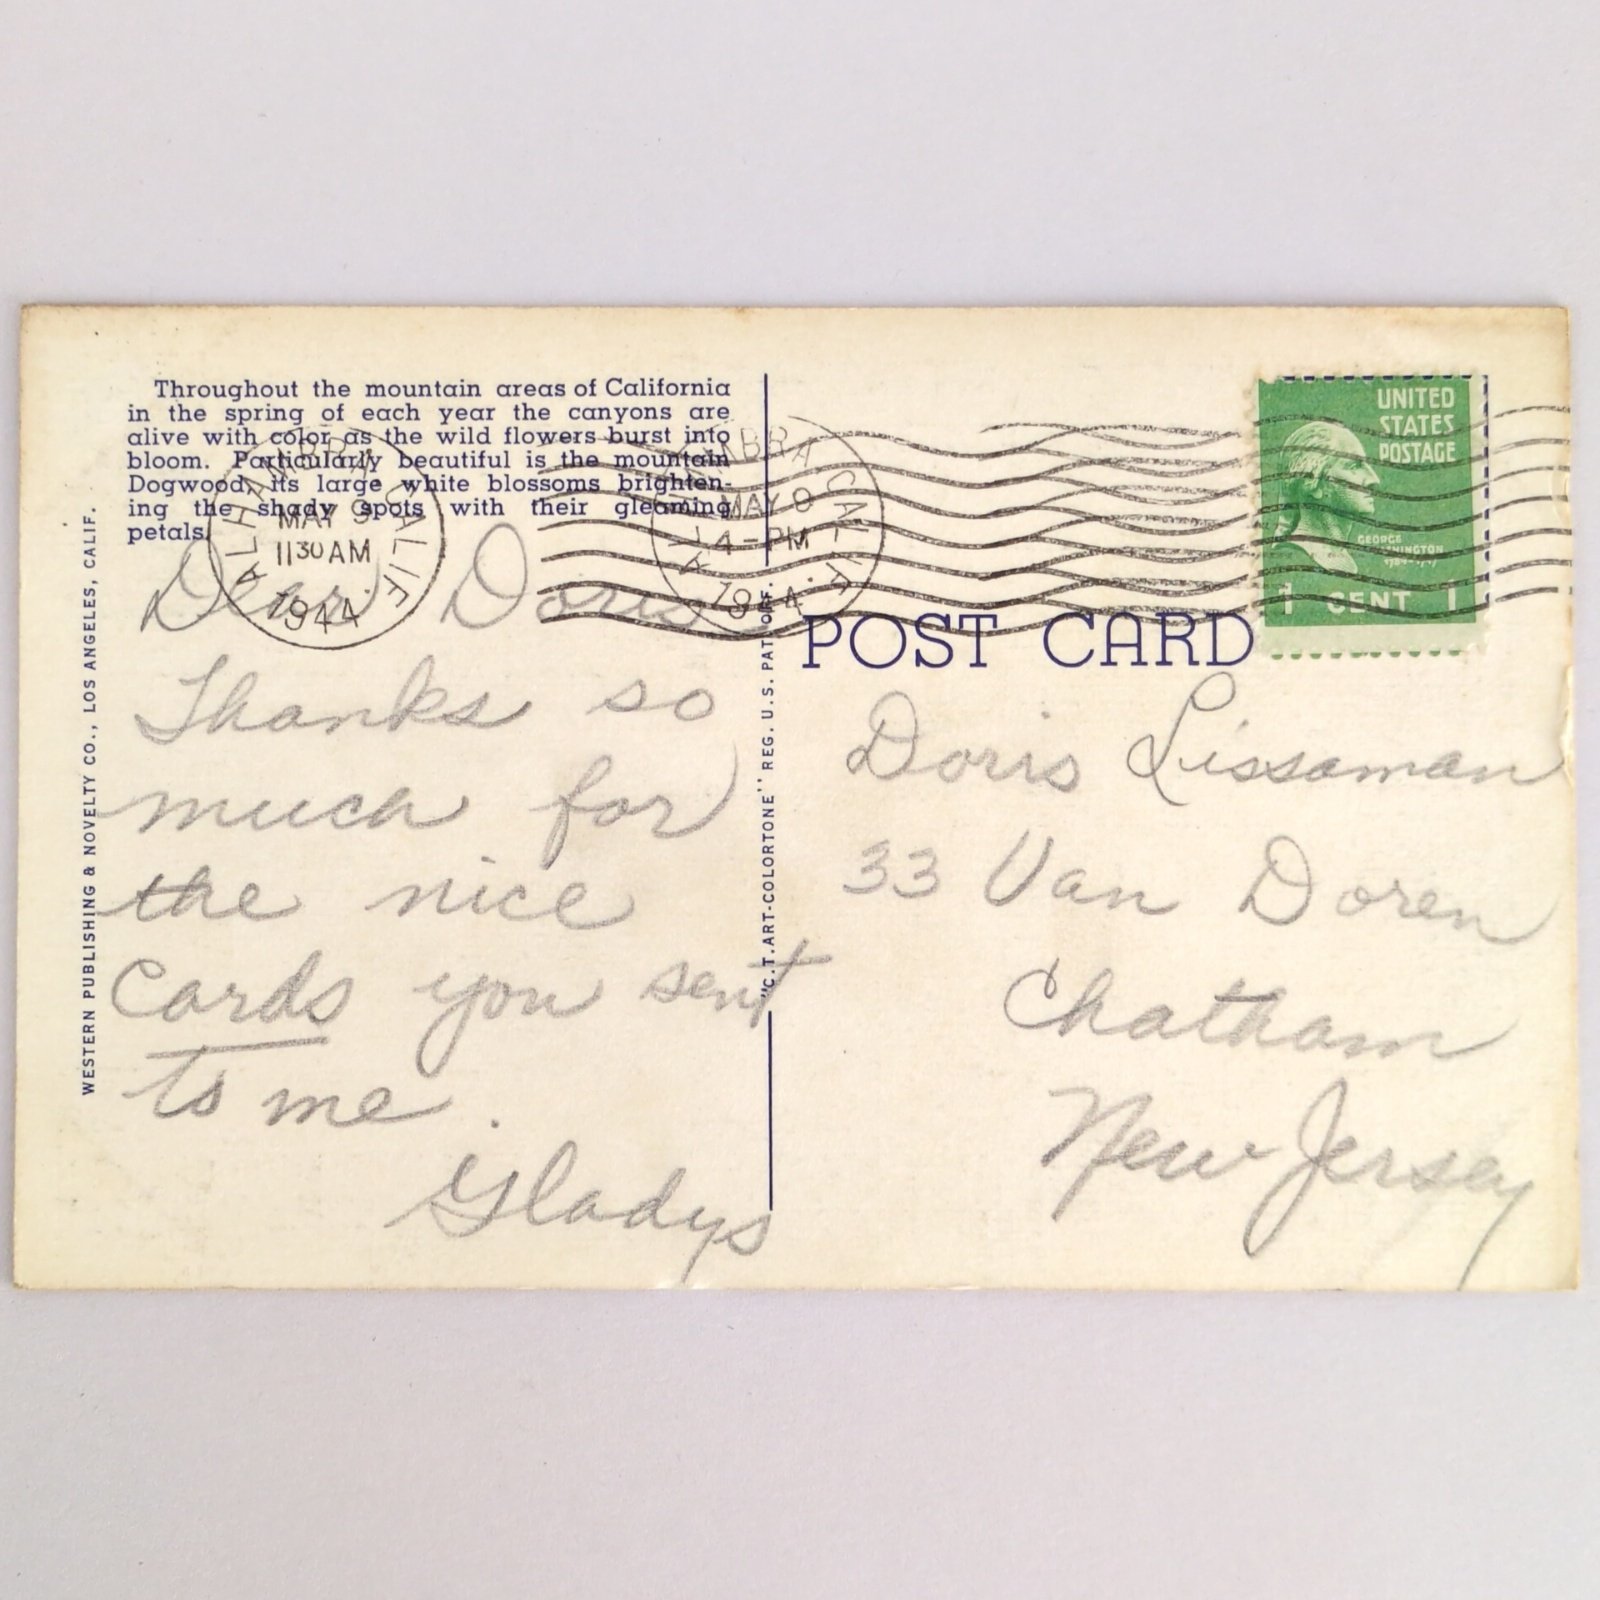 Throughout the mountain areas of California
in the spring of each year the canyons are
alive with color as the wild flowers burst into
bloom. Particularly beautiful is the mountain
Dogwood, its large white blossoms brighten-
ing the shady spots with their gleaming
petals.
ALHAMBRA CALIF.
MAY 9
1130 AM
1944
CALIF.
MAY
4-PM
UNITED
STATES
POSTAGE
GEORGE
WASHINGTON
1 CENT 1
POST CARD
Dear Doris
Thanks so
much for
the nice
cards you sent
to me.
Gladys
Doris Lissaman
33 Van Doren
Chatham
New Jersey
WESTERN PUBLISHING & NOVELTY CO., LOS ANGELES, CALIF.
"C.T. ART-COLORTONE" REG. U.S. PAT. OFF.